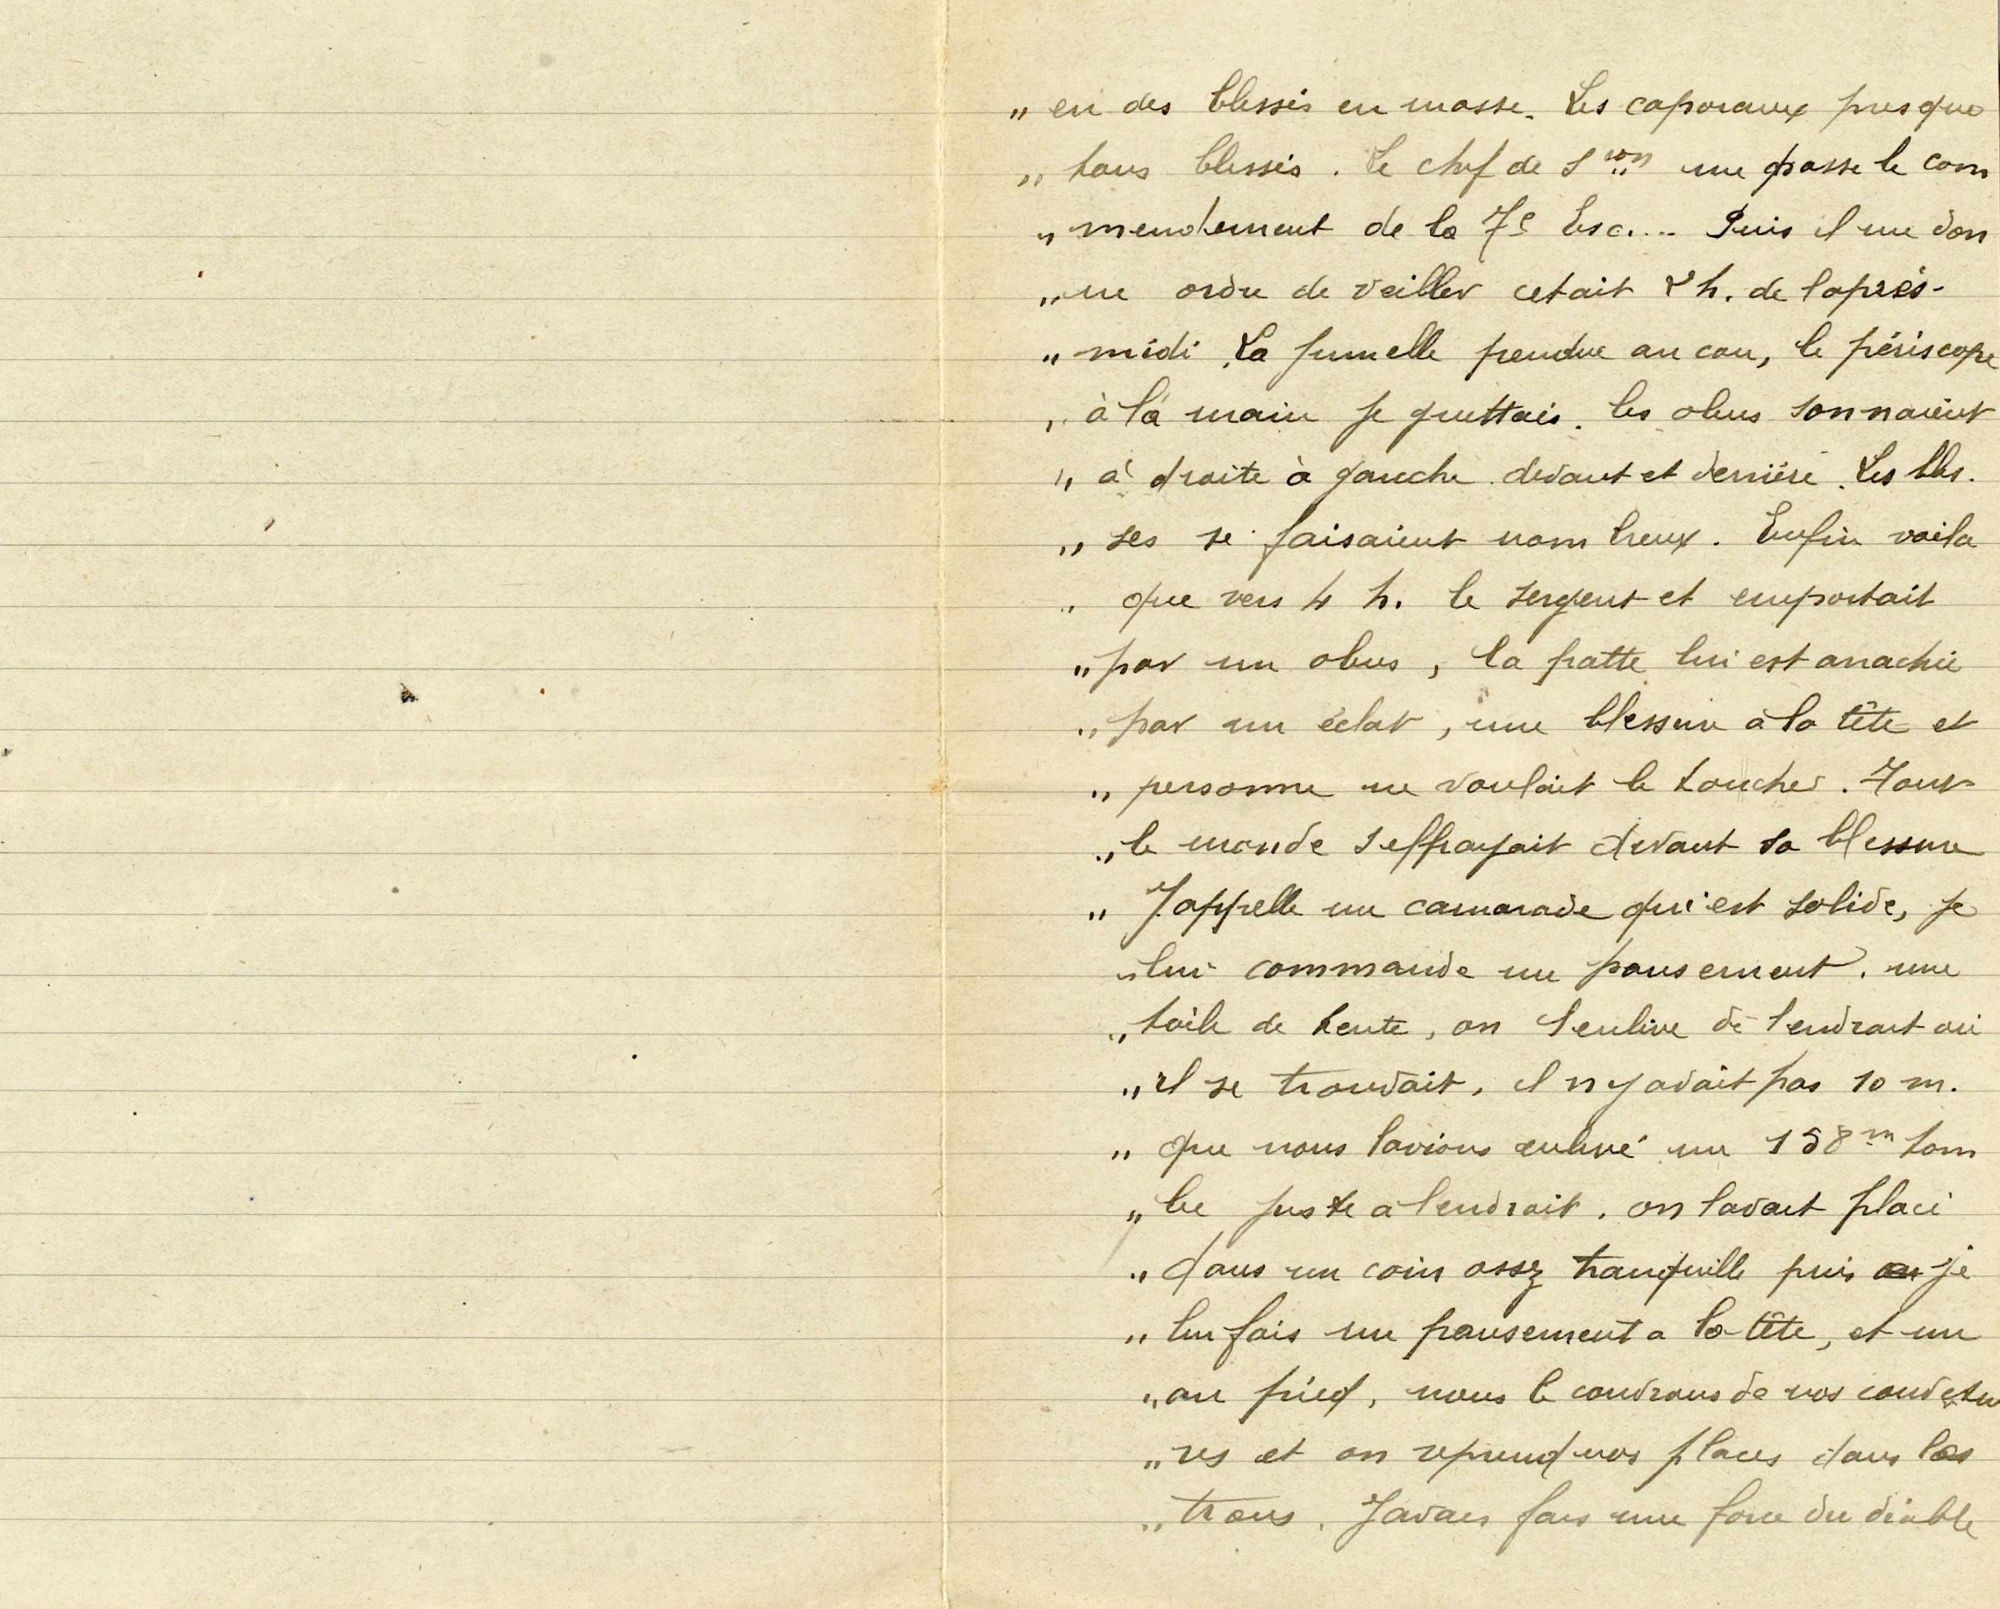 „ en des blessés en masse. Les caporaux presque
„ tous blessés. Le chef de Son me passe le com
„ mendement de la 7e Esc... Puis il me don
„ ne ordre de veiller cetait 2 h. de laprés-
„ midi. La jumelle pendue au cou, le périscope
„ à la main je guettais. les obus sonnaient
„ à droite à gauche devant et derriére. Les bles.
„ ses se faisaient nombreux. Enfin voila
„ que vers 4 h. le sergent et emportait
„ par un obus, la patte lui est arrachée
„ par un éclat, une blessure à la tête et
„ personne ne voulait le toucher. Tout
„ le monde seffrayait devant sa blessure
„ Jappelle un camarade qui est solide, je
„ lui commande un pansement. une
„ toile de tente, on lenlève de lendroit où
„ il se trouvait, il n y avait pas 10 m.
„ que nous lavions enlevé un 158m tom
„ be juste a lendroit. on lavait placé
„ dans un coin assez tranquille puis je
„ lui fais un pansement a la tête, et un
„ au pied, nous le couvrons de nos couvertu
„ res et on reprend nos places dans les
„ trous. Javais fais une force du diable